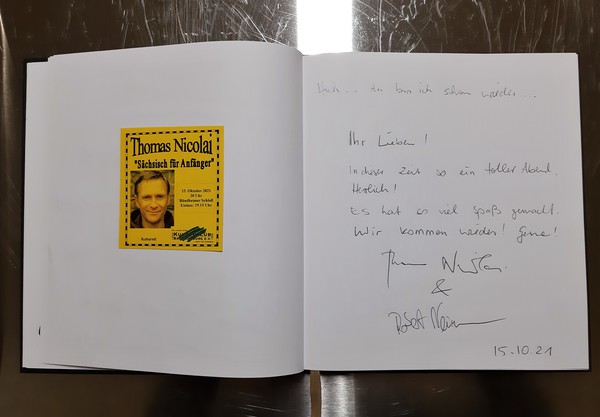 Thomas Nicolai
"Sächsisch für Anfänger"
15. Oktober 2021
20 Uhr
Einlass: 19.15 Uhr
Kulturzeit
da bin ich schon wieder...
Ihr Lieben!
In dieser Zeit so ein toller Abend.
Herrlich!
Es hat so viel Spaß gemacht.
Wir kommen wieder! Gerne!
&
15.10.21